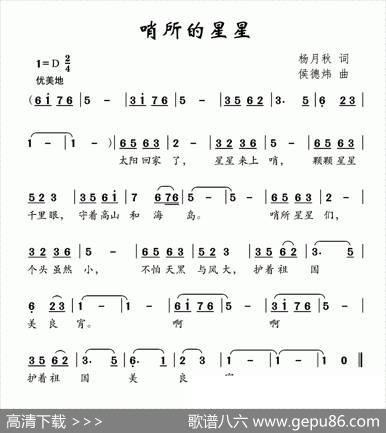 哨所的星星
1=D 2/4
杨月秋 词
优美地
侯德炜 曲
(6 i 7 6 | 5 - | 3 2 3 5 6 5 6 2 | 3· 5 | 6 2 3 |
1 - | 1 -) | 6 5 6 3 | 2 - | 3 2 3 6 | 5 - | 6 5 6 3 |
太阳回家 了, 星星来上 哨, 颗颗星星
5 2 3 | 3 5 6 i | 7 6 7 6 | 5 - | 5 - | 3 5 6 5 | 2 - |
千里眼, 守着高山 和 海 岛。 哨所星星 们,
3 2 3 1 | 2 - | 5 6 5 3 | 2 3 2 6 | 3 5 6 2 | 3· 5 |
个头虽然 小, 不怕天黑 与风大, 护着祖 国
6 2 3 | 1 - | 1 - | 6 i 7 6 | 5 - | 3 i 7 6 | 5 - |
美 良 宵。 啊 啊
3 5 6 2 | 3· 5 | 6· 1 | 2 3 | 1 - | 1 0 ‖
护着祖 国 美 良
高清下载 >>>
歌谱八六 www.gepu86.com